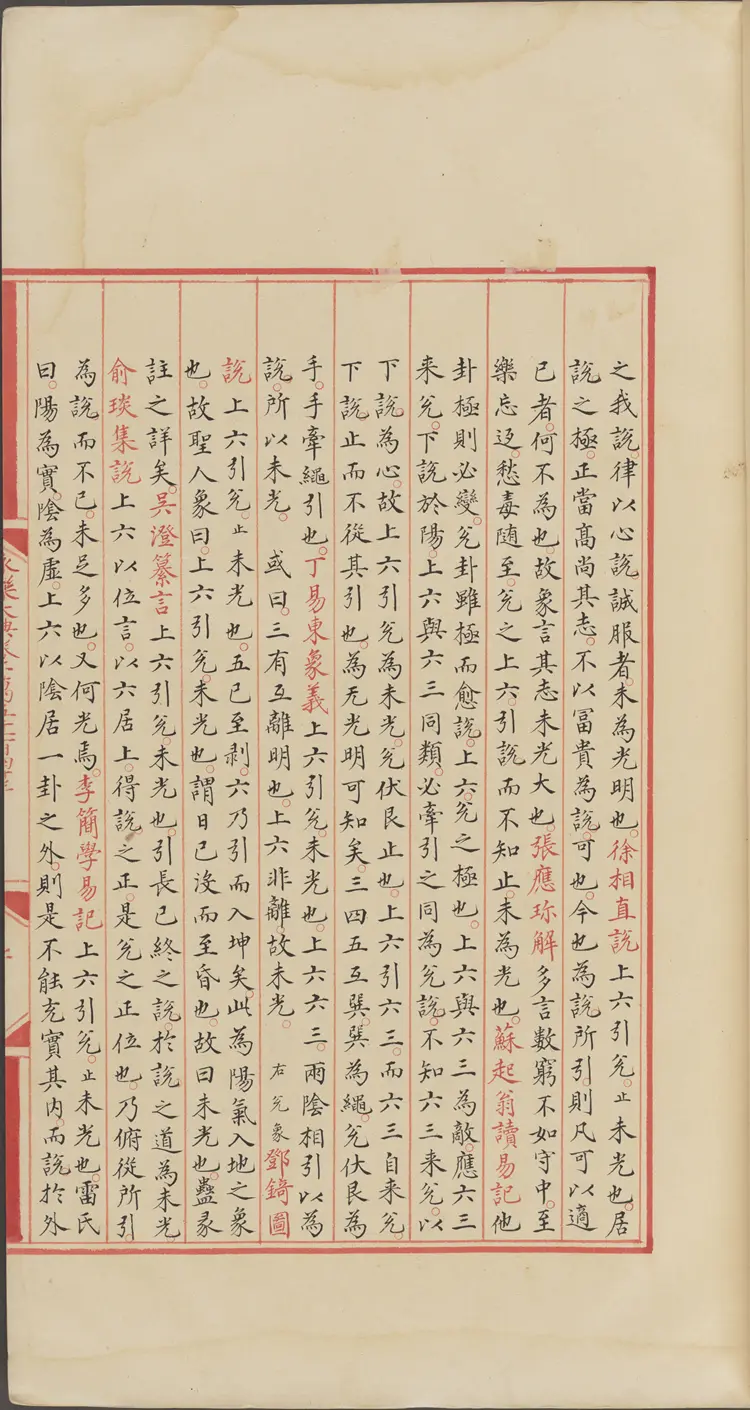 之我說。律以心說誠服者。未為光明也。徐相直說上六引兊。止未光也。居
說之極。正當髙尚其志。不以冨貴為說。可也。今也為說所引。則凡可以適
已者。何不為也。故象言其志未光大也。張應珎解多言數窮不如守中。至
樂忘迓。愁毒随至。兊之上六。引說而不知止。未為光也。蘇起翁讀易記他
卦極則必變。兊卦雖極而愈說。上六。兊之極也。上六與六三為敵。應六三
来兊。下說於陽。上六與六三同類。必牽引之同為兊說。不知六三来兊。以
下說為心。故上六引兊為未光。兊伏艮止也。上六引六三。而六三自来兊。
下說止而不從其引也。為无光明可知矣。三四五互㢲。㢲為繩。兊伏艮為
手。手牽繩引也。丁易東象義上六引兊。未光也。上六六三。兩陰相引以為
說。所以未光。 或曰。三有互離明也。上六非離。故未光。 右兊象鄧錡圖
說上六引兊。止未光也。五已至剥。六乃引而入坤矣。此為陽氣入地之象
也。故聖人象曰。上六引兊。未光也。謂日已沒而至昏也。故曰未光也。蠱彖
註之詳矣。吳澄纂言上六引兊。未光也。引長已終之說。於說之道為未光。
俞琰集說上六以位言。以六居上。得說之正。是兊之正位也。乃俯從所引。
為說而不已。未足多也。又何光焉。李簡學易記上六引兊。止未光也。雷氏
曰。陽為實。陰為虛。上六以陰居一卦之外。則是不能充實其内。而說於外